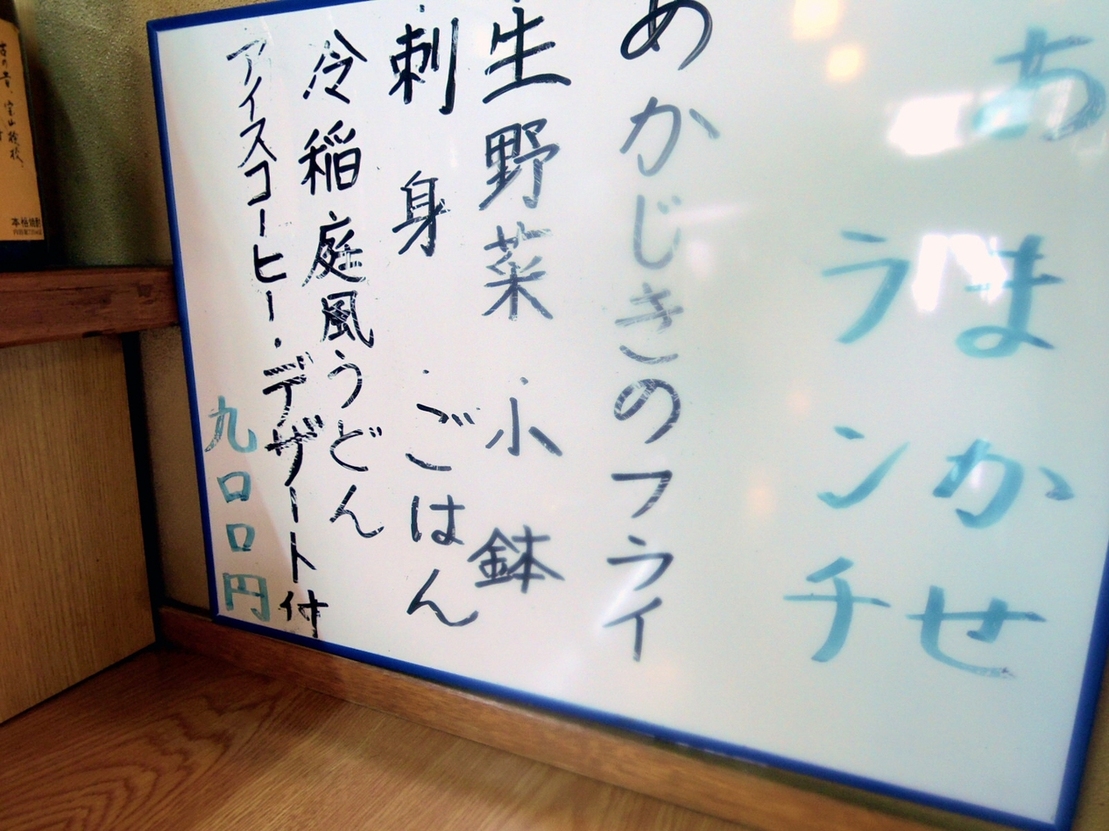 おまかせ
ランチ
めかじきのフライ
生野菜・小鉢
刺身・ごはん
冷稲庭風うどん
アイスコーヒー・デザート付
九〇〇円
本格焼酎